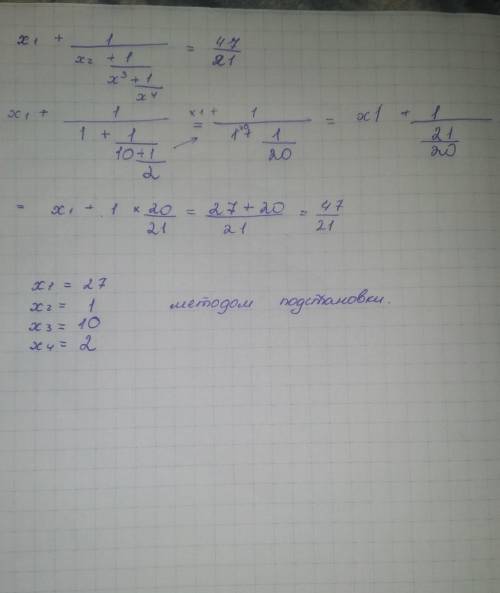 x₁ + 1/(x₂ + 1/(x³ + 1/x⁴)) = 47/21
x₁ + 1/(1 + 1/(10 + 1/2)) = x₁ + 1/(1 1/20) = x1 + 1/(21/20)
= x₁ + 1 × 20/21 = (27 + 20)/21 = 47/21
x₁ = 27
x₂ = 1 методом подстановки.
x₃ = 10
x₄ = 2